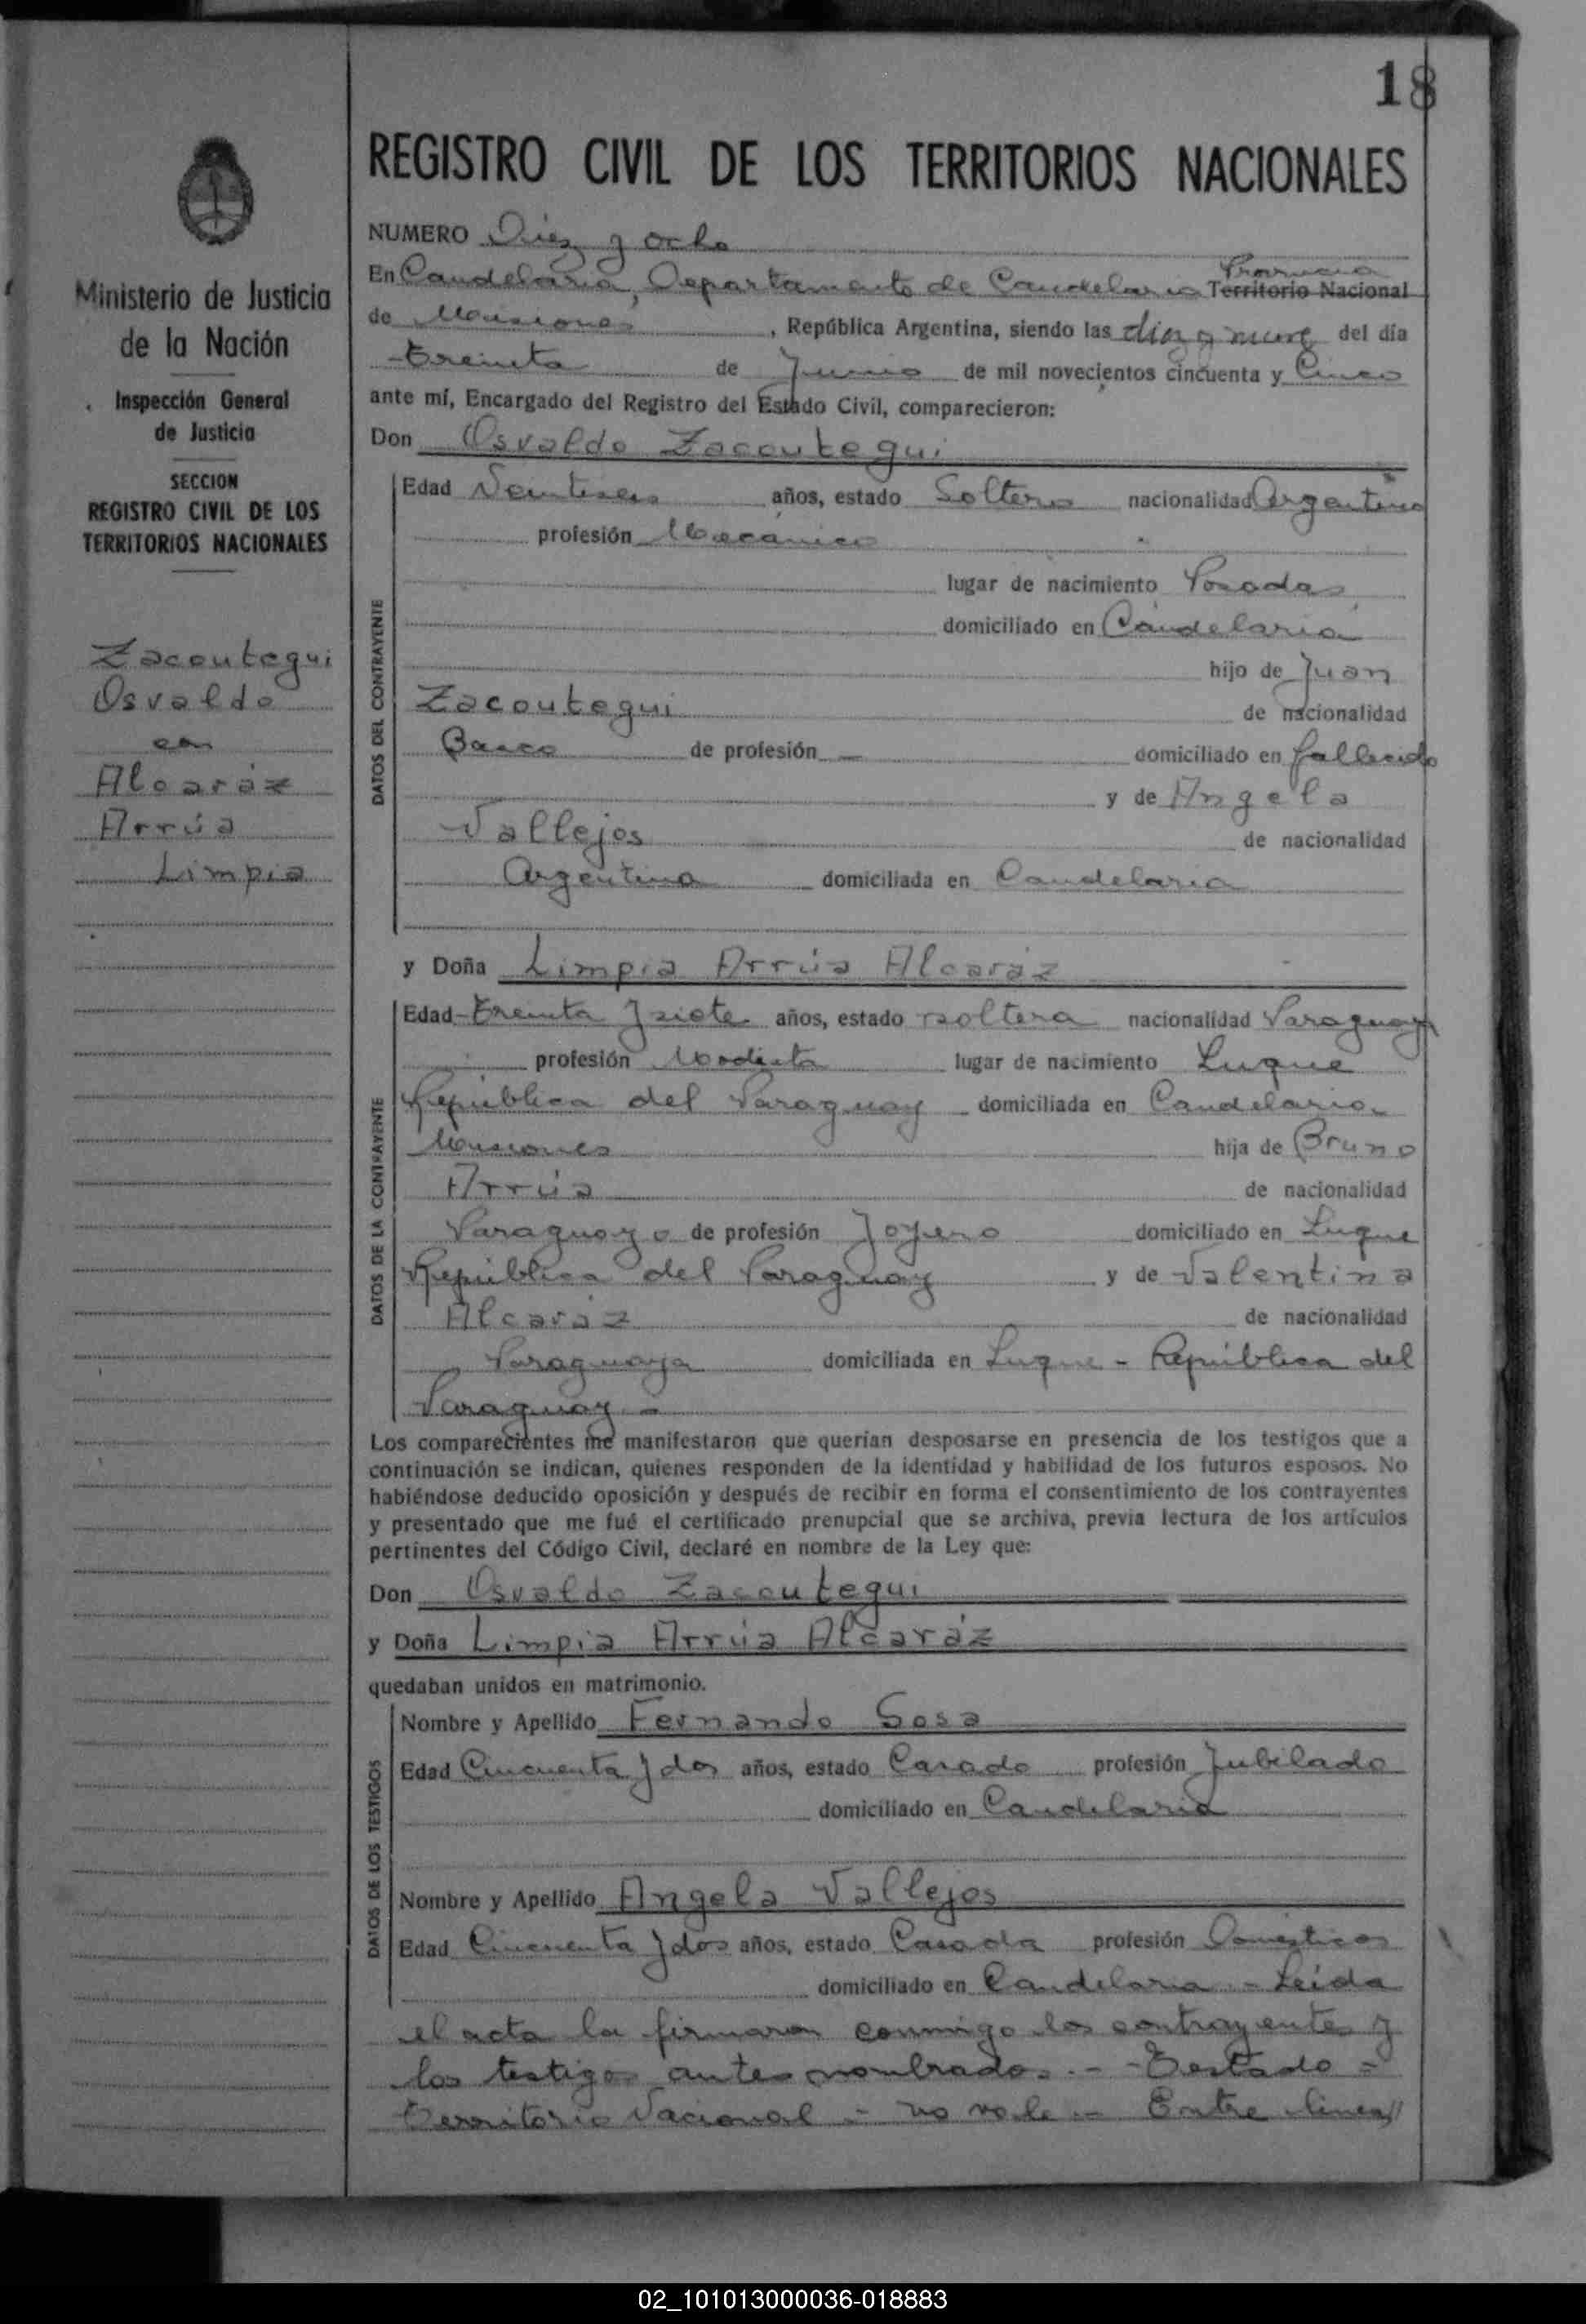 18
REGISTRO CIVIL DE LOS TERRITORIOS NACIONALES
Ministerio de Justicia
de la Nación
Inspección General
de Justicia
SECCION
REGISTRO CIVIL DE LOS
TERRITORIOS NACIONALES
Zacoutegui
Osvaldo
con
Alcaráz
Arrúa
Limpia
NUMERO Diez y ocho
Provincia
En Candelaria, Departamento de Candelaria Territorio Nacional
de Misiones, República Argentina, siendo las diez y nueve del día
treinta de Junio de mil novecientos cincuenta y Cinco
ante mí, Encargado del Registro del Estado Civil, comparecieron:
Don Osvaldo Zacoutegui
DATOS DEL CONTRAYENTE
Edad Veintiseis años, estado Soltero nacionalidad Argentino
profesión Mecánico
lugar de nacimiento Posadas
domiciliado en Candelaria
hijo de Juan
Zacoutegui de nacionalidad
Basco de profesión — domiciliado en fallecido
y de Angela
Vallejos de nacionalidad
Argentina domiciliada en Candelaria
y Doña Limpia Arrúa Alcaráz
DATOS DE LA CONTRAYENTE
Edad treinta y siete años, estado soltera nacionalidad Paraguaya
profesión Modista lugar de nacimiento Luque
República del Paraguay domiciliada en Candelaria
Misiones hija de Bruno
Arrúa de nacionalidad
Paraguayo de profesión Joyero domiciliado en Luque
República del Paraguay y de Valentina
Alcaráz de nacionalidad
Paraguaya domiciliada en Luque - República del
Paraguay -
Los comparecientes me manifestaron que querían desposarse en presencia de los testigos que a
continuación se indican, quienes responden de la identidad y habilidad de los futuros esposos. No
habiéndose deducido oposición y después de recibir en forma el consentimiento de los contrayentes
y presentado que me fué el certificado prenupcial que se archiva, previa lectura de los artículos
pertinentes del Código Civil, declaré en nombre de la Ley que:
Don Osvaldo Zacoutegui
y Doña Limpia Arrúa Alcaráz
quedaban unidos en matrimonio.
DATOS DE LOS TESTIGOS
Nombre y Apellido Fernando Sosa
Edad Cincuenta y dos años, estado Casado profesión Jubilado
domiciliado en Candelaria
Nombre y Apellido Angela Vallejos
Edad Cincuenta y dos años, estado Casada profesión Domésticos
domiciliado en Candelaria - Leída
el acta la firmaron conmigo los contrayentes y
los testigos antes nombrados.- - Testado -
Territorio Nacional - no vale - Entre lineas
02_101013000036-018883